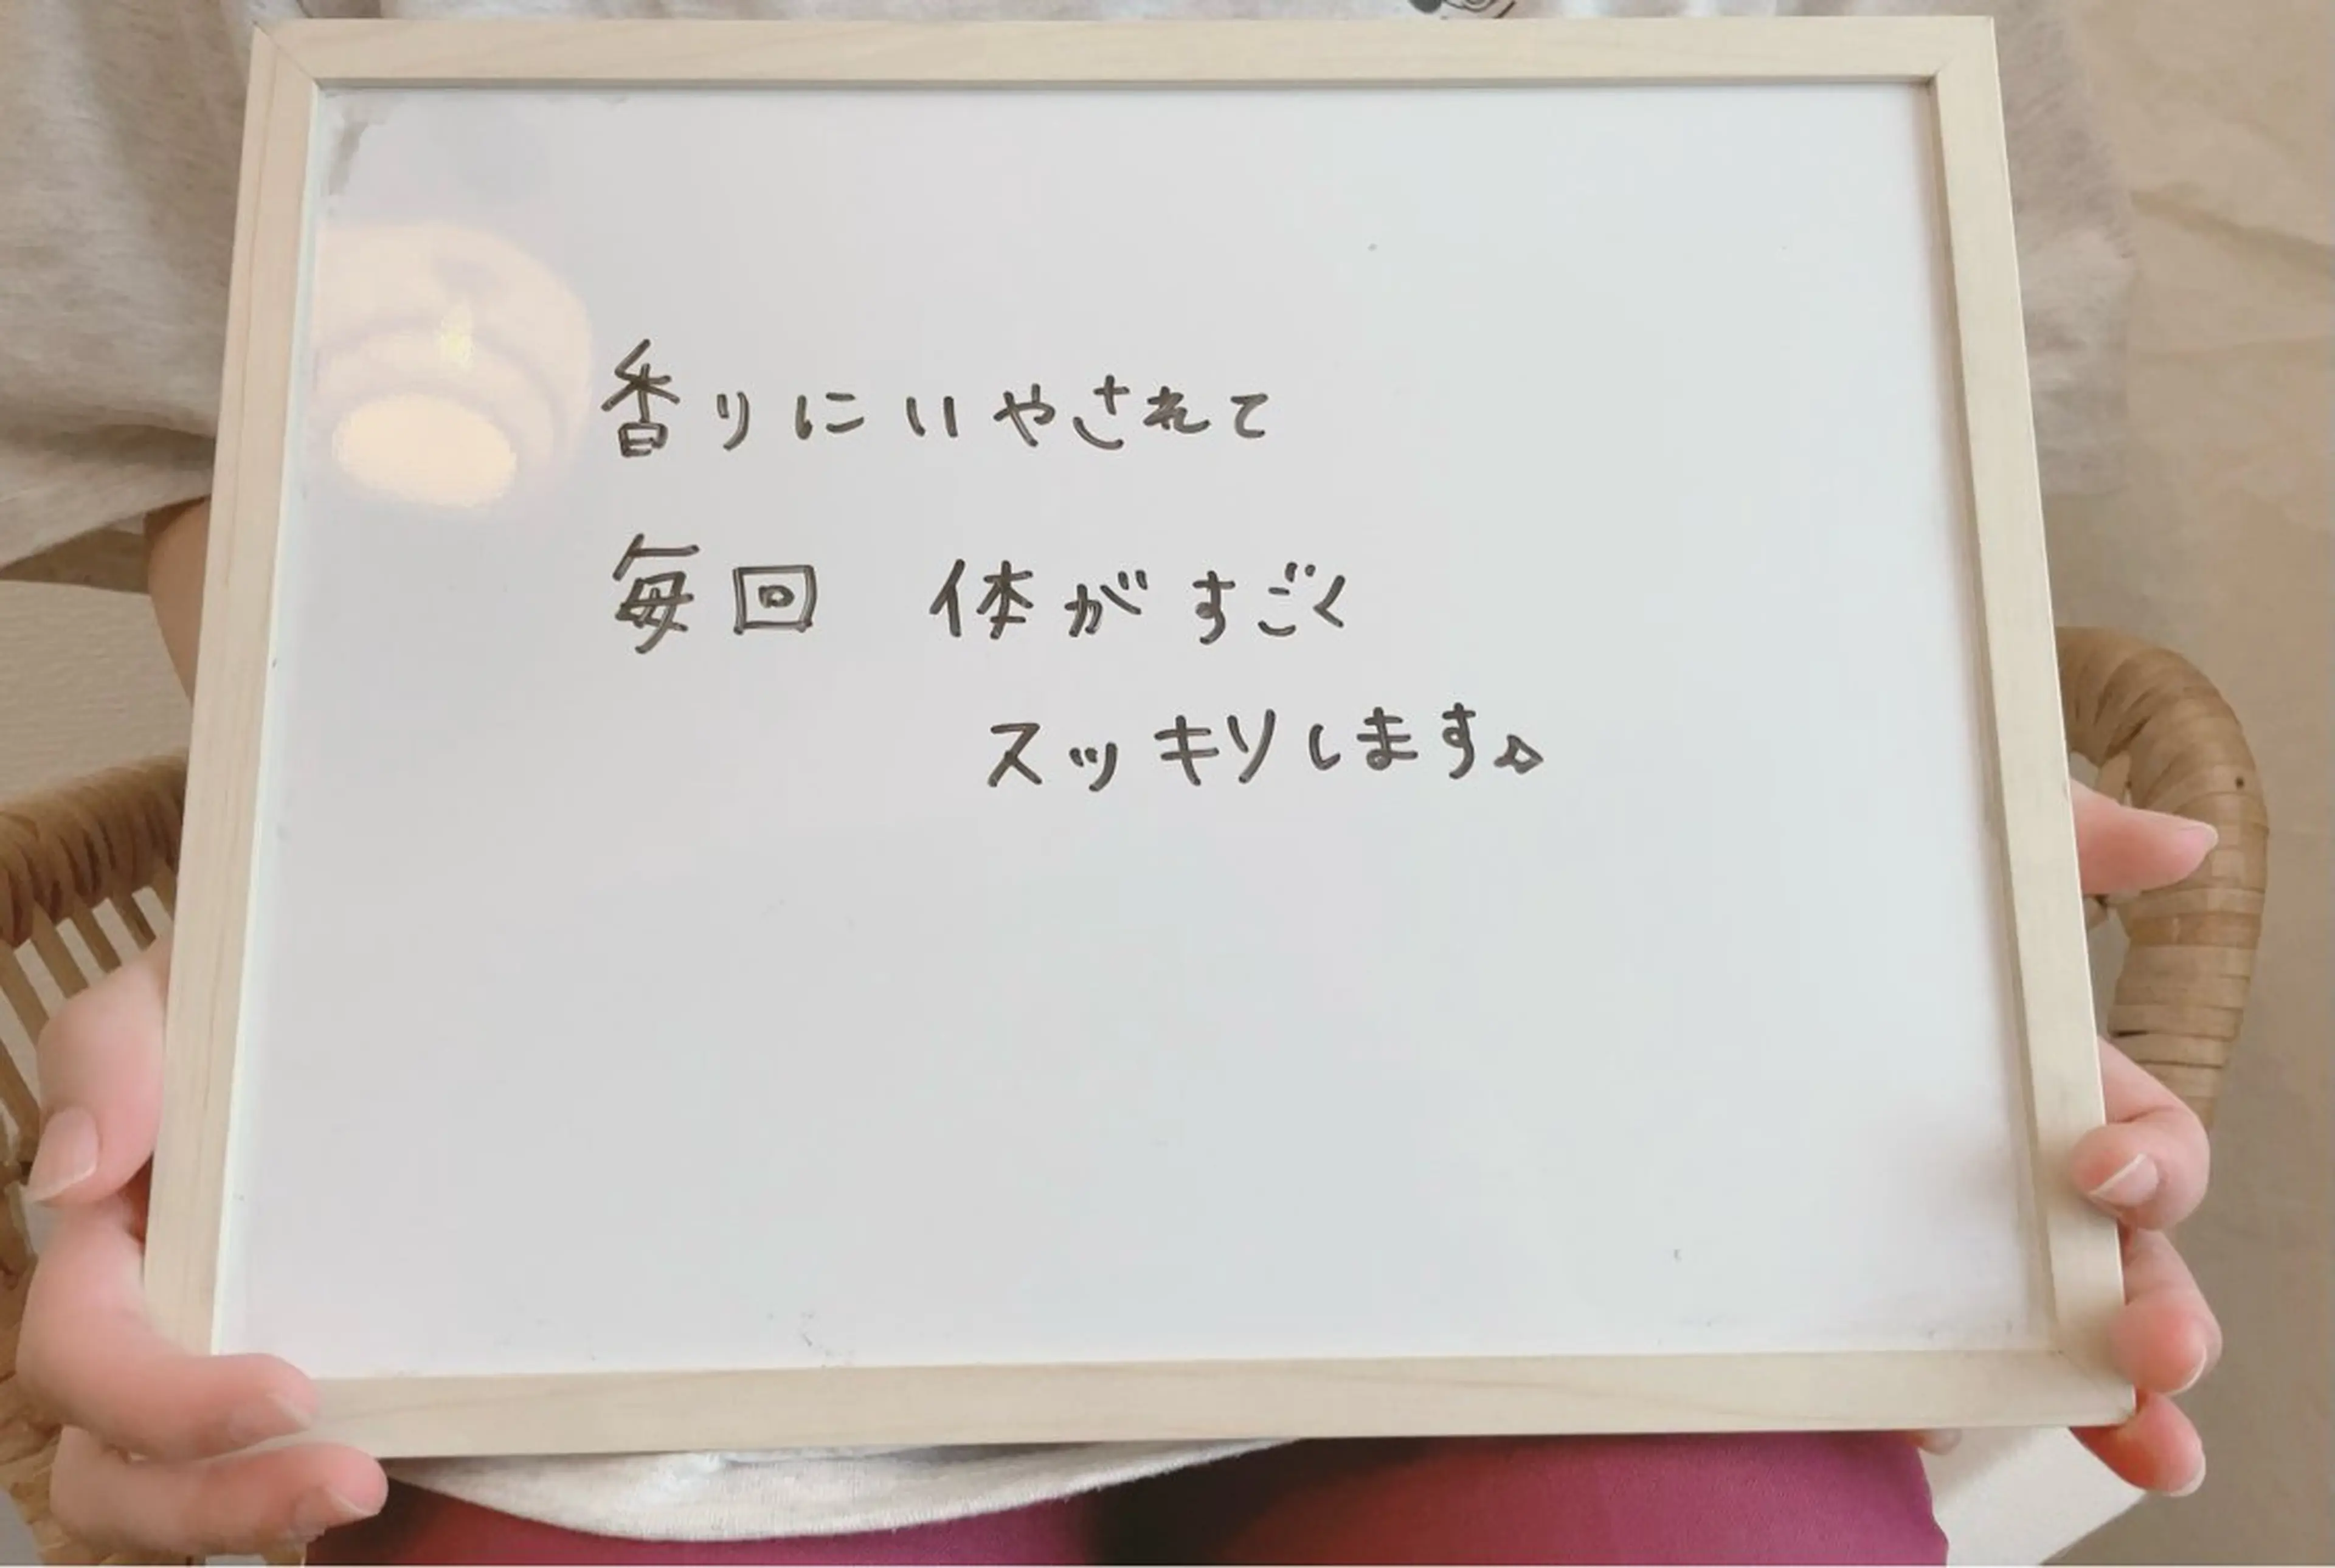 香りにいやされて
毎回 体がすごく
スッキリします♪